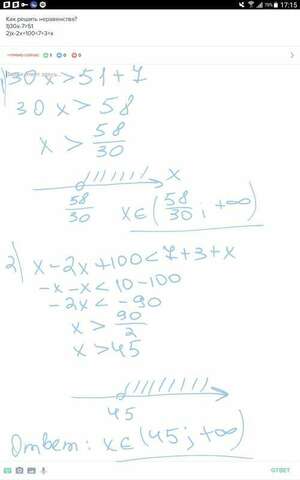 17:15
Как решать неравенства?
1)30х-7>51
2)х-2х+100<7+3+х
1) 30x > 51 + 7
30x > 58
x > 58/30
x
58/30
x∈(58/30; +∞)
2) x - 2x + 100 < 7 + 3 + x
-x - x < 10 - 100
-2x < -90
x > 90/2
x > 45
45
Ответ: x∈(45; +∞)
ОТВЕТ